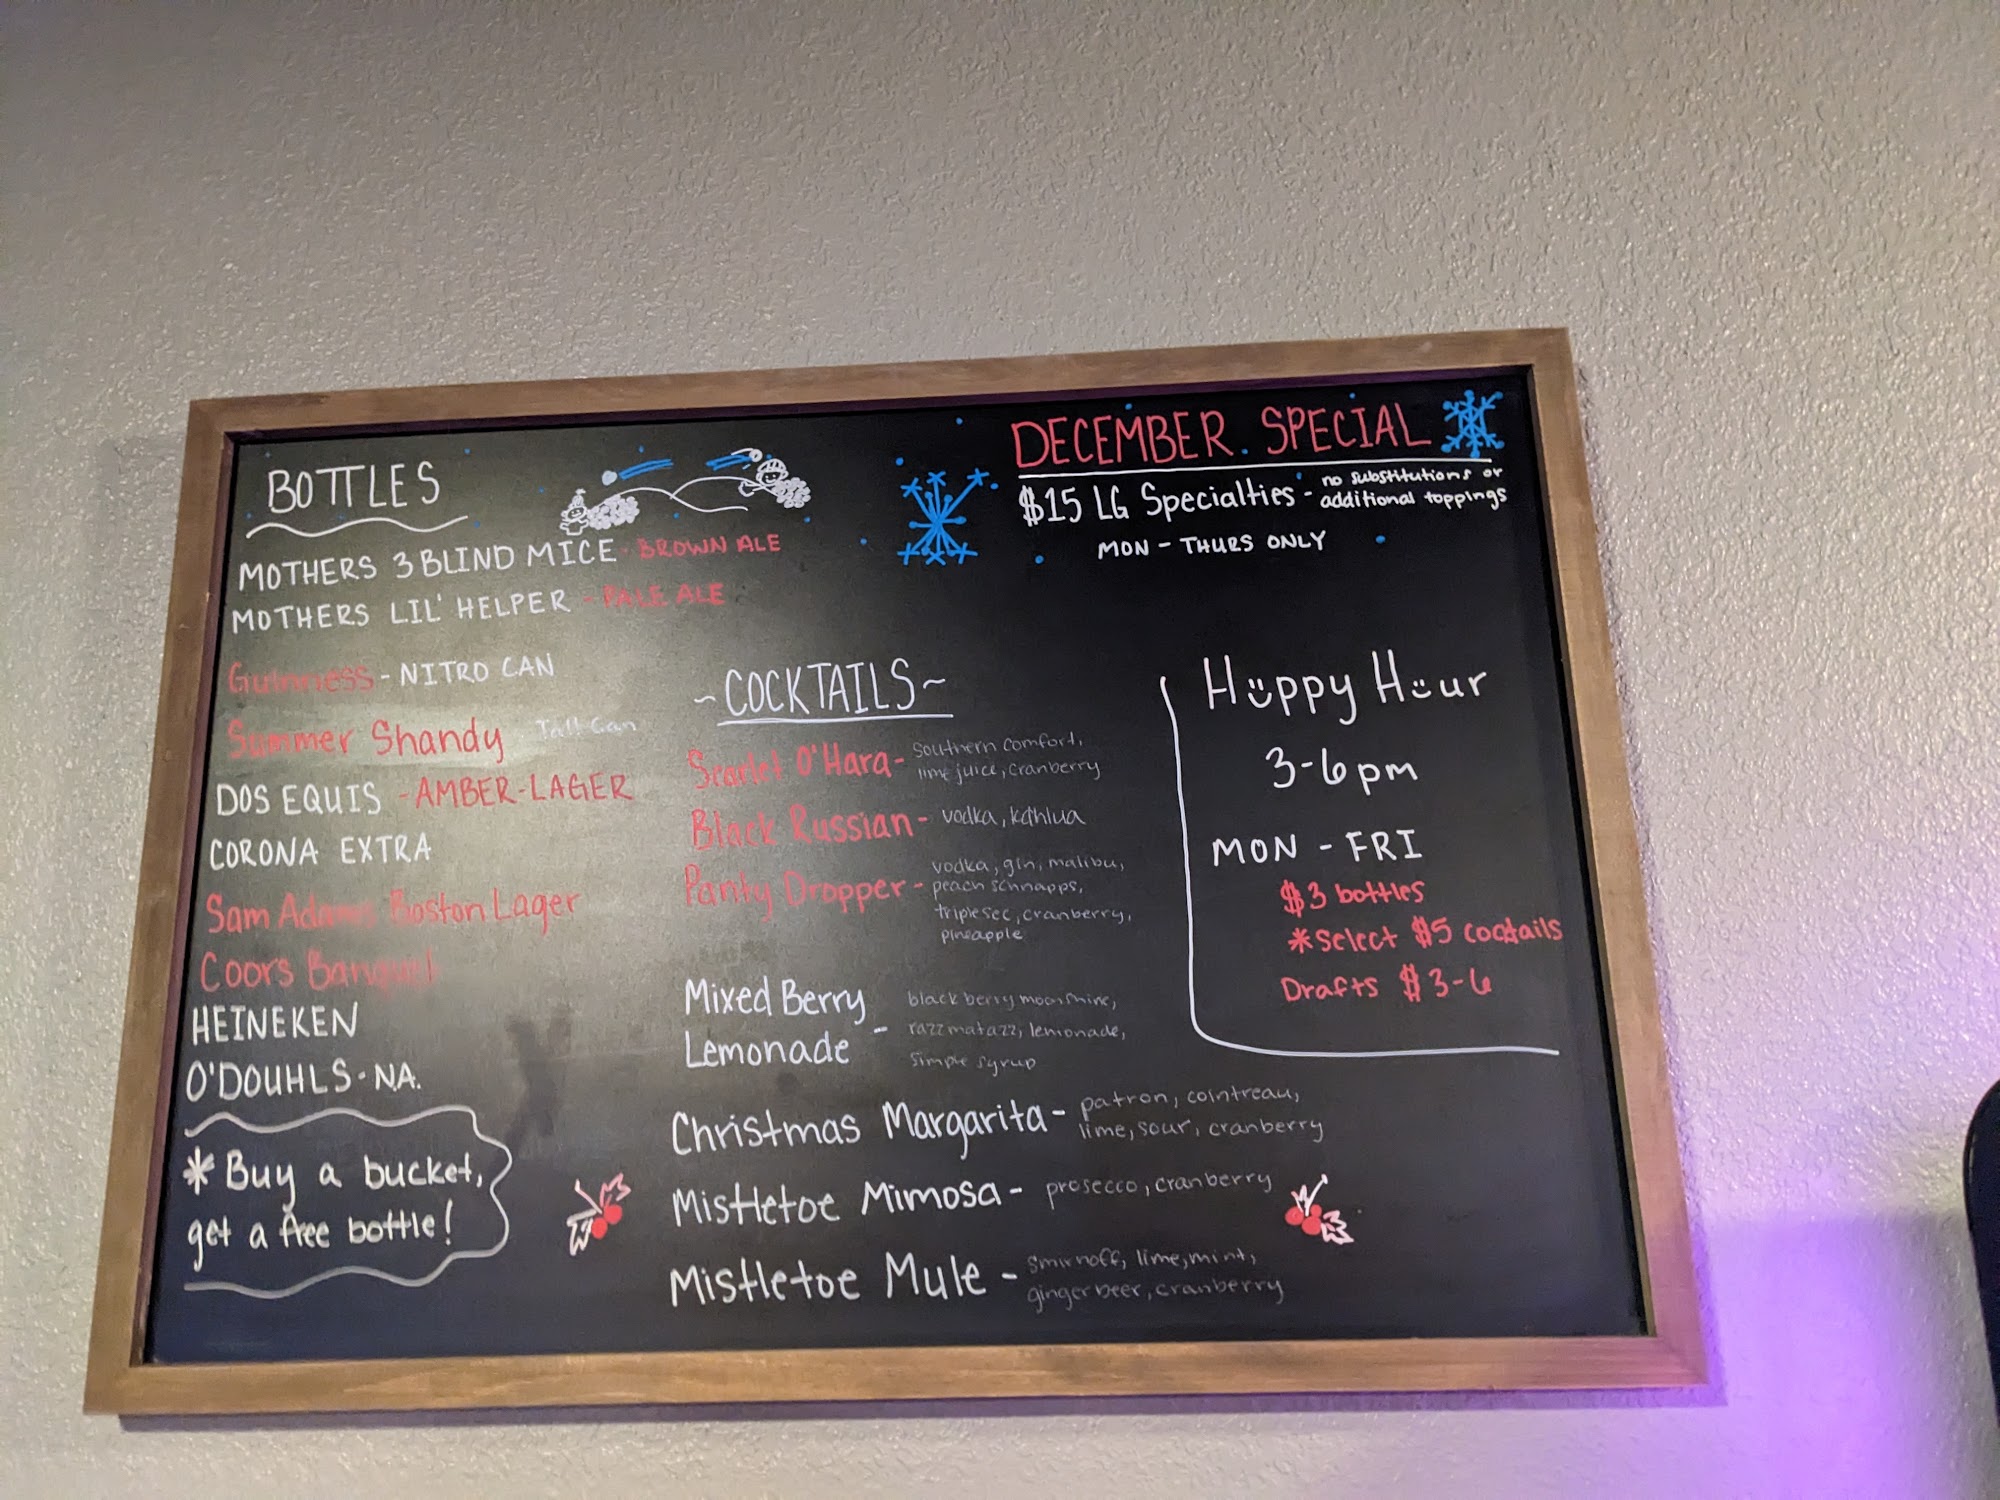 BOTTLES
MOTHERS 3 BLIND MICE - BROWN ALE
MOTHERS LIL' HELPER - PALE ALE
Guinness - NITRO CAN
Summer Shandy - Tall Can
DOS EQUIS - AMBER-LAGER
CORONA EXTRA
Sam Adams Boston Lager
Coors Banquet
HEINEKEN
O'DOUHLS - N.A.
* Buy a bucket,
get a free bottle!
DECEMBER SPECIAL
$15 LG Specialties - no substitutions or
additional toppings
MON - THURS ONLY
~COCKTAILS~
Scarlet O'Hara - Southern comfort,
lime juice, cranberry
Black Russian - vodka, kahlua
Panty Dropper - vodka, gin, malibu,
peach schnapps,
triple sec, cranberry,
pineapple
Mixed Berry
Lemonade - blackberry moonshine,
razzmatazz, lemonade,
simple syrup
Christmas Margarita - patron, cointreau,
lime, sour, cranberry
Mistletoe Mimosa - prosecco, cranberry
Mistletoe Mule - smirnoff, lime, mint,
ginger beer, cranberry
Happy Hour
3-6pm
MON - FRI
$3 bottles
*Select $5 cocktails
Drafts $3-6